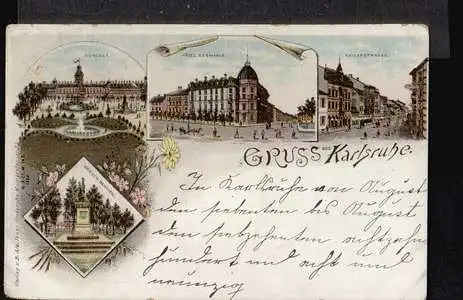 SCHLOSS
HOTEL GERMANIA
KAISERSTRASSE
GRUSS aus Karlsruhe.
In Karlsruhe von August
den siebenten bis August
den siebzehnten achtzehn
hundert und acht und
neunzig